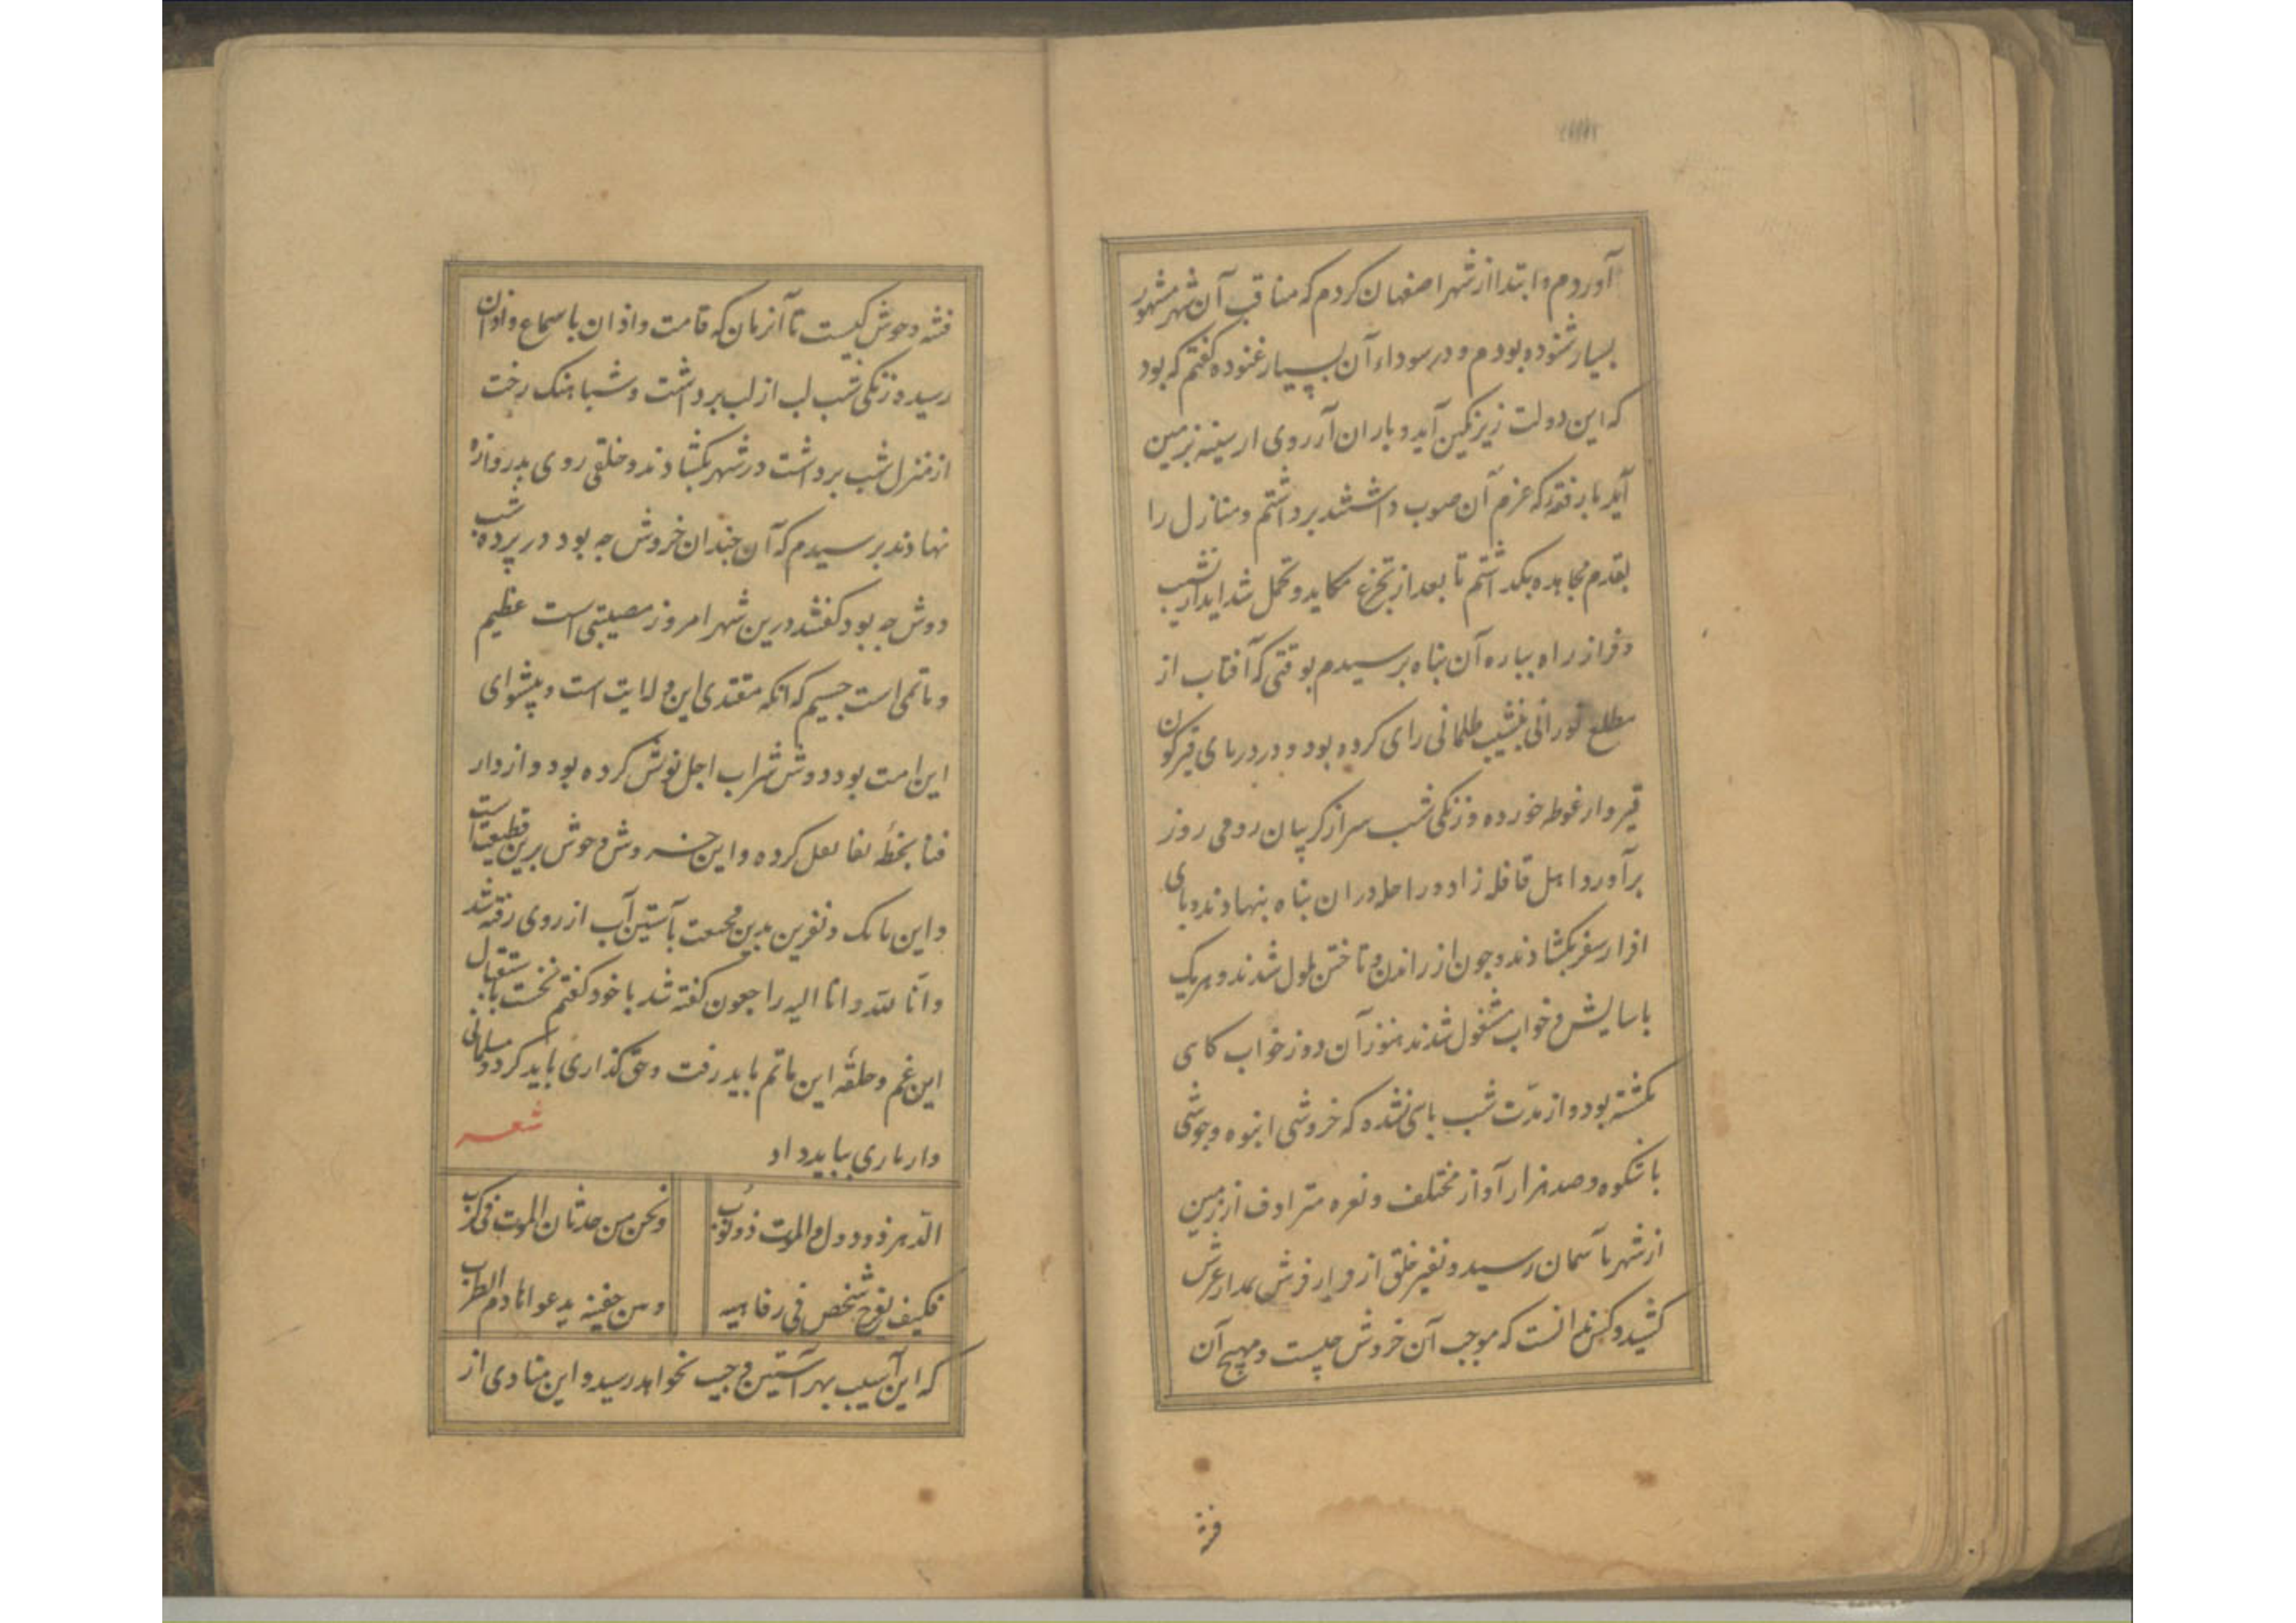 آوردم و ابتدا از شهر اصفهان کردم که مناقب آن شهر مشهور
بسیار شنوده بودم و در سوداء آن بسیار غنوده گفتم که بود
که این دولت زیر نکین آید و باران آرزوی از سینه بزمین
آید با رفقه که عزم آن صوب داشتند برداشتم و منازل را
بقدم مجاهده بگذاشتم تا بعد از تجرع مکاید و تحمل شداید از نشیب
و فراز راه بباره آن بناه برسیدم بوقتی که آفتاب از
مطلع نورانی بنشیب ظلمانی رای کرده بود و در دریای قیرگون
قیروار غوطه خورده و زنکی شب سر از کریبان رومی روز
برآورد اهل قافله زاد و راحله در آن بناه بنهادند و بای
افزار سفر بکشادند و چون از راندن و تاختن ملول شدند و هریک
باسایش و خواب مشغول شدند هنوز آن دوز خواب کاسی
نکشته بود و از مدّت شب باسی نشده که خروشی انبوه و جوشی
باشکوه و صد هزار آواز مختلف و نعره مترادف از زمین
از شهر بآسمان رسید و نفیر خلق از فرش بمدار عرش
کشید و کس ندانست که موجب آن خروش چیست و مهیج آن
فتنه
فتنه و جوش کیست تا آنزمان که قامت و اذان باسماع و اذان
رسید و زنکی شب لب از لب برداشت و شباهنک رخت
از منزل شب برداشت در شهر بکشادند و خلقی روی بدروازه
نهادند برسیدم که آن جندان خروش جه بود در برده شب
دوش جه بود کفتند درین شهر امروز مصیبتی است عظیم
و ماتمی است جسیم که آنکه مقتدی این ولایت است و پیشوای
این امت بود دوش شراب اجل نوش کرده بود و از دار
فنا بخطّه بقا نقل کرده و این خروش و جوش برین قطیعت است
و این بانک و نفرین بدین فجیعت بآستین آب از روی رفته شد
و انّا لله و انا الیه راجعون کفته شد با خود کفتم نخست باستقبال
این غم و حلقه این ماتم باید رفت و حق کذاری باید کرد و مسلمانی
وار یاری بباید داد
شعر
الدّهر ذو دول والموت ذو نوب
ونحن من حدثان الموت فی کرب
فکیف یفرح شخص فی رفاهیه
ومن حفینه یدعو انا دم الطرب
که این آسیب بهر آستین و جیب نخواهد رسید و این منادی از